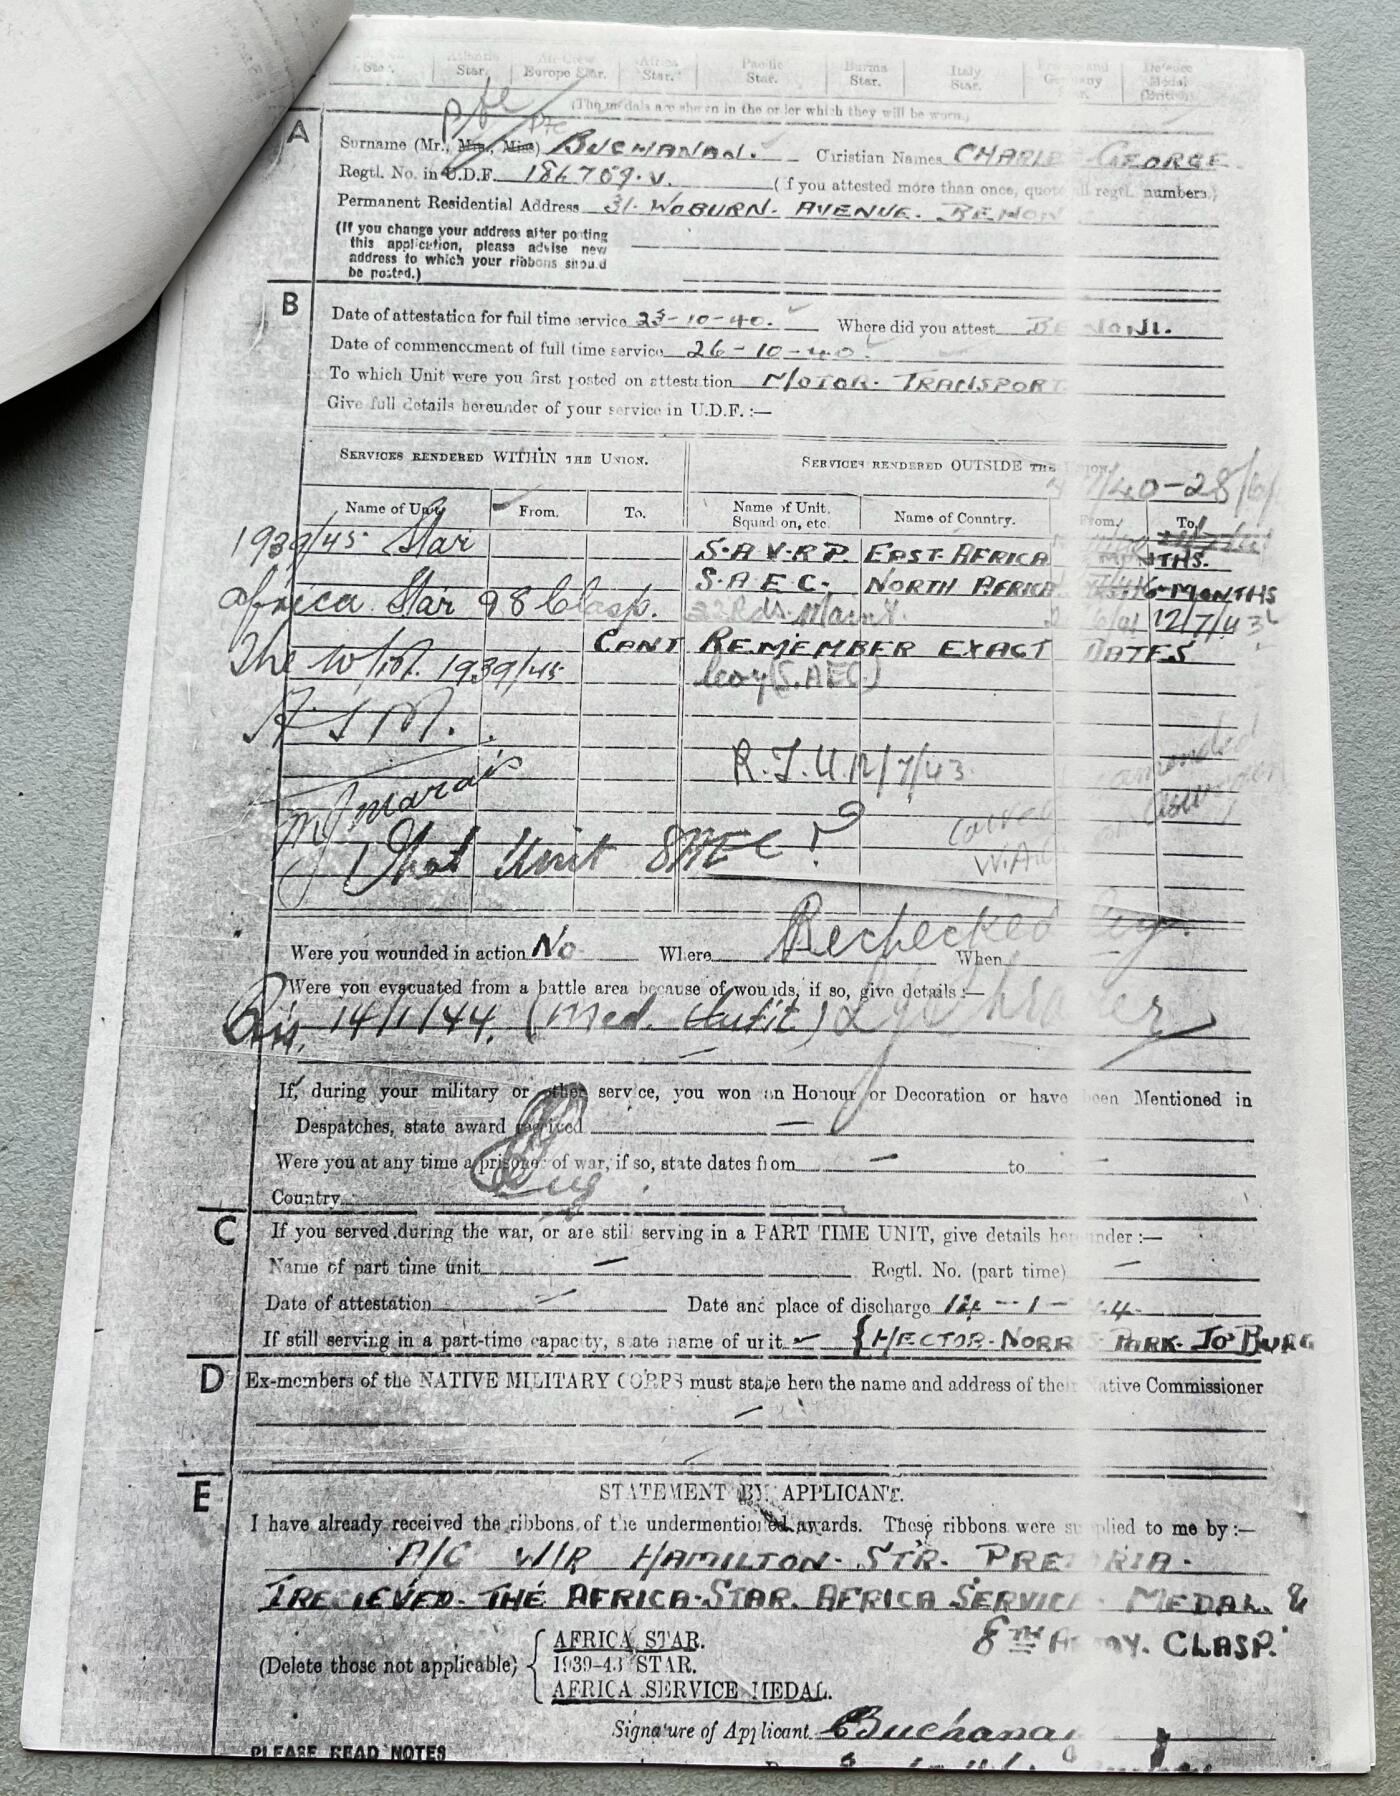 Star. Star. Europe Star. Star. Pacific Star. Burma Star. Italy Star. Germany Defence Medal
(The medals are shown in the order which they will be worn.)
Pte
A
Surname (Mr., Mrs., Miss) BUCHANAN. Christian Names CHARLES GEORGE
Regtl. No. in U.D.F. 186709.V. (If you attested more than once, quote all regtl. numbers.)
Permanent Residential Address 31. WOBURN. AVENUE. BENON
(If you change your address after posting
this application, please advise new
address to which your ribbons should
be posted.)
B
Date of attestation for full time service 23-10-40. Where did you attest BENONI.
Date of commencement of full time service 26-10-40.
To which Unit were you first posted on attestation MOTOR. TRANSPORT
Give full details hereunder of your service in U.D.F. :—
SERVICES RENDERED WITHIN THE UNION. SERVICES RENDERED OUTSIDE THE UNION.
/40-28/
Name of Unit From. To. Name of Unit, Squadron, etc. Name of Country. From. To.
1939/45 Star S.A.V.R.P. EAST. AFRICA MONTHS.
S.A.E.C. NORTH AFRICA 6 MONTHS
Africa Star & 8 Clasp. 22 Rds. Maint. 12/7/43
CANT REMEMBER EXACT DATES
The W/M. 1939/45 Coy (S.AEC.)
A S M.
R.T.U. 12/7/43.
amended
MJ Marais
What Unit SAEC ?
Rechecked
Were you wounded in action No Where When
Were you evacuated from a battle area because of wounds, if so, give details :—
Dis. 14/1/44. (Med. Unfit)
If, during your military or other service, you won an Honour or Decoration or have been Mentioned in
Despatches, state award received —
Were you at any time a prisoner of war, if so, state dates from — to —
Country
C
If you served during the war, or are still serving in a PART TIME UNIT, give details hereunder :—
Name of part time unit — Regtl. No. (part time) —
Date of attestation — Date and place of discharge 14-1-44.
If still serving in a part-time capacity, state name of unit — {HECTOR. NORRIS PARK. JO'BURG
D
Ex-members of the NATIVE MILITARY CORPS must state here the name and address of their Native Commissioner
—
E
STATEMENT BY APPLICANT.
I have already received the ribbons of the undermentioned awards. These ribbons were supplied to me by :—
O/C W/R HAMILTON. STR. PRETORIA.
I RECIEVED. THE AFRICA. STAR. AFRICA SERVICE. MEDAL. &
8TH ARMY. CLASP.
(Delete those not applicable)
AFRICA STAR.
1939-43 STAR.
AFRICA SERVICE MEDAL.
Signature of Applicant CBuchanan
PLEASE READ NOTES